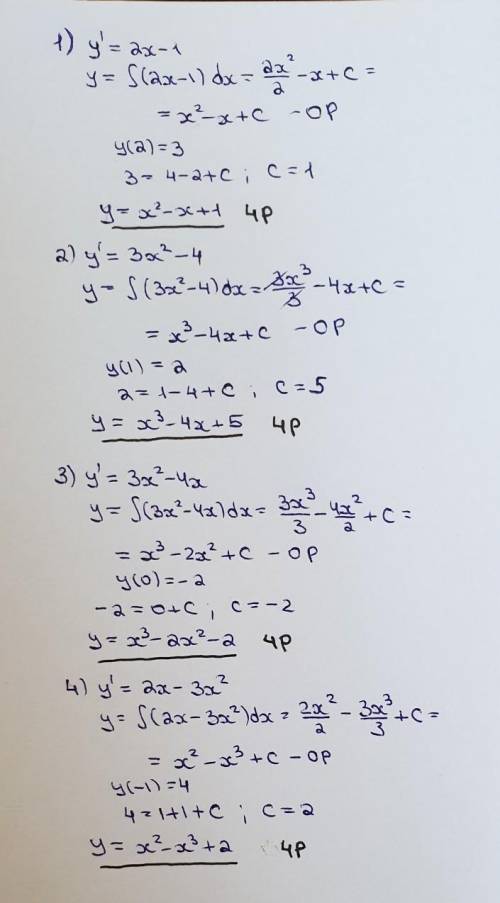 1) y' = 2x-1
y = ∫(2x-1) dx = 2x²/2 - x + C =
= x² - x + C - OP
y(2) = 3
3 = 4-2+C ; C = 1
y = x² - x + 1 ЧP
2) y' = 3x² - 4
y = ∫(3x²-4)dx = 3x³/3 - 4x + C =
= x³ - 4x + C - OP
y(1) = 2
2 = 1-4+C ; C = 5
y = x³ - 4x + 5 ЧP
3) y' = 3x² - 4x
y = ∫(3x²-4x)dx = 3x³/3 - 4x²/2 + C =
= x³ - 2x² + C - OP
y(0) = -2
-2 = 0+C ; C = -2
y = x³ - 2x² - 2 ЧP
4) y' = 2x - 3x²
y = ∫(2x-3x²)dx = 2x²/2 - 3x³/3 + C =
= x² - x³ + C - OP
y(-1) = 4
4 = 1+1+C ; C = 2
y = x² - x³ + 2 ЧP